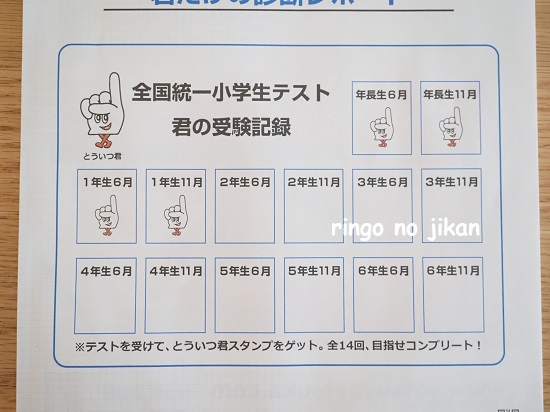 君だけの診断レポート
全国統一小学生テスト
君の受験記録
とういつ君
年長生6月 年長生11月
1年生6月 1年生11月 2年生6月 2年生11月 3年生6月 3年生11月
ringo no jikan
4年生6月 4年生11月 5年生6月 5年生11月 6年生6月 6年生11月
※テストを受けて、とういつ君スタンプをゲット。全14回、目指せコンプリート！